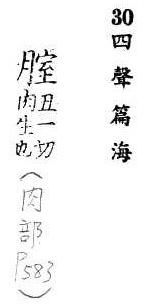 30四聲篇海
膣丑一切
肉生也
(肉部P583)